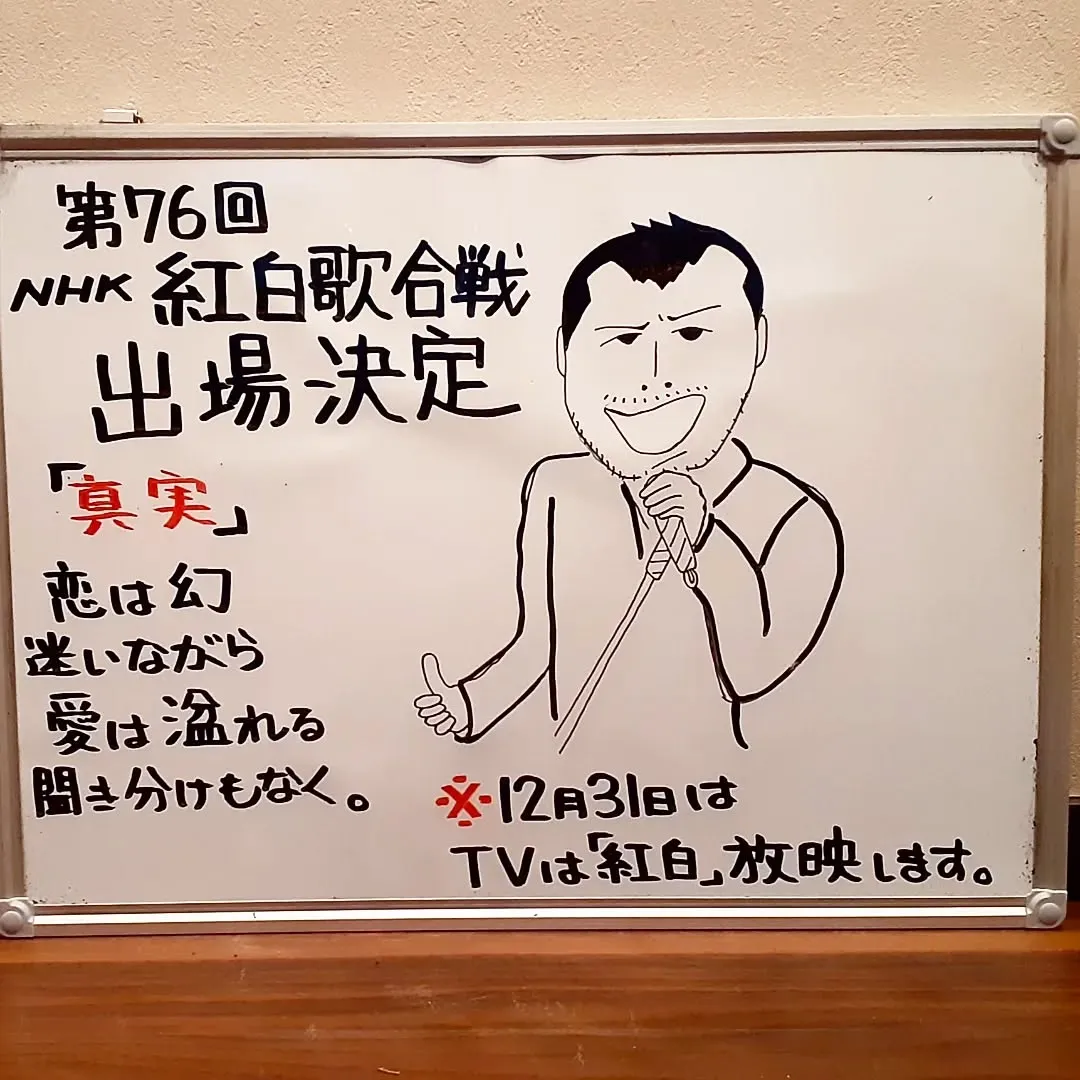 第76回
NHK 紅白歌合戦
出場決定
「真実」
恋は幻
迷いながら
愛は溢れる
聞き分けもなく。
※12月31日は
TVは「紅白」放映します。